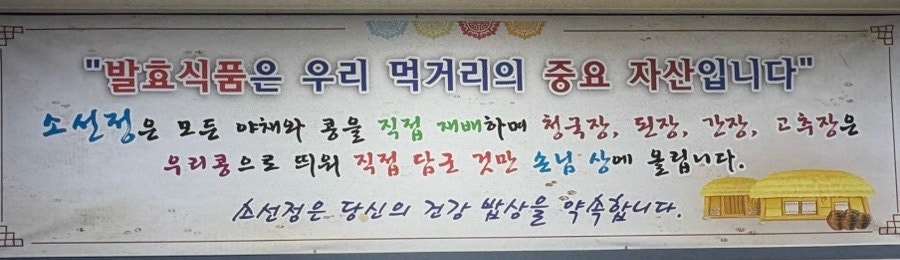 "발효식품은 우리 먹거리의 중요 자산입니다"
소선정은 모든 야채와 콩을 직접 재배하며 청국장, 된장, 간장, 고추장은
우리콩으로 띄워 직접 담근 것만 손님 상에 올립니다.
소선정은 당신의 건강 밥상을 약속합니다.